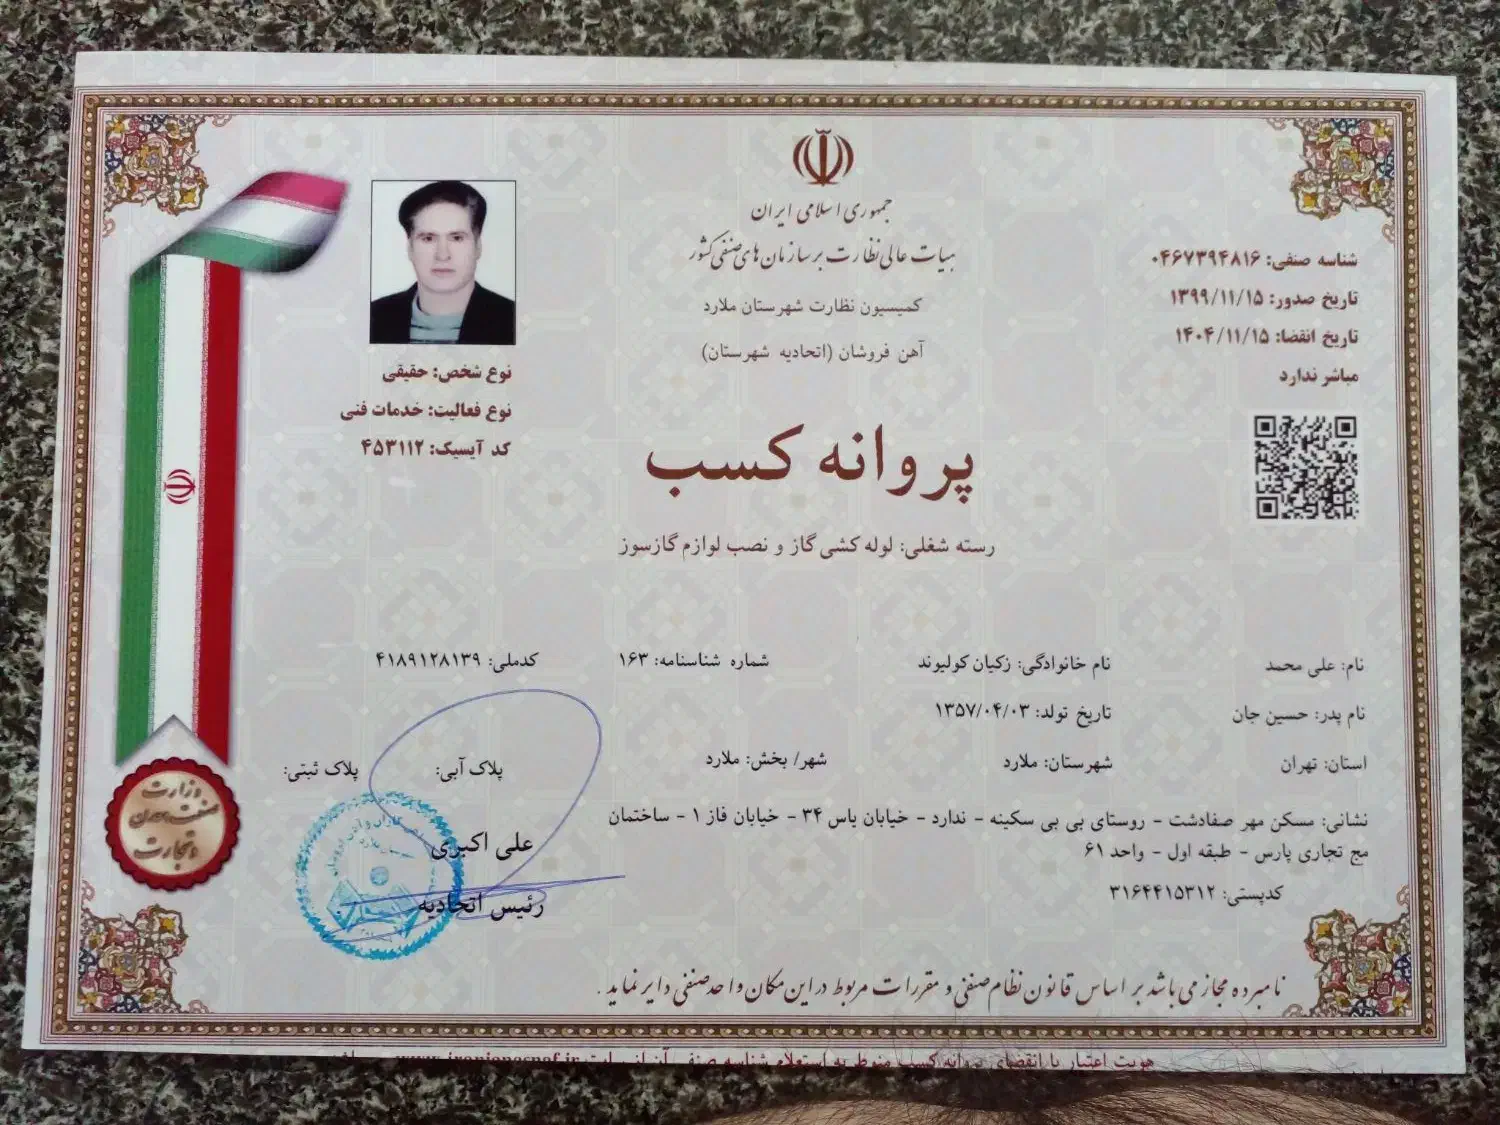 جمهوری اسلامی ایران
هیات عالی نظارت بر سازمان های صنفی کشور
کمیسیون نظارت شهرستان ملارد
آهن فروشان (اتحادیه شهرستان)
شناسه صنفی: ۰۴۶۷۳۹۴۸۱۶
تاریخ صدور: ۱۳۹۹/۱۱/۱۵
تاریخ انقضا: ۱۴۰۴/۱۱/۱۵
مباشر ندارد
نوع شخص: حقیقی
نوع فعالیت: خدمات فنی
کد آیسیک: ۴۵۳۱۱۲
پروانه کسب
رسته شغلی: لوله کشی گاز و نصب لوازم گازسوز
نام: علی محمد نام خانوادگی: زکیان کولیوند شماره شناسنامه: ۱۶۳ کدملی: ۴۱۸۹۱۲۸۱۳۹
نام پدر: حسین جان تاریخ تولد: ۱۳۵۷/۰۴/۰۳
استان: تهران شهرستان: ملارد شهر/ بخش: ملارد پلاک آبی: پلاک ثبتی:
نشانی: مسکن مهر صفادشت - روستای بی بی سکینه - ندارد - خیابان یاس ۳۴ - خیابان فاز ۱ - ساختمان
مج تجاری پارس - طبقه اول - واحد ۶۱
کدپستی: ۳۱۶۴۴۱۵۳۱۲
علی اکبری
رئیس اتحادیه
وزارت
صنعت معدن
و تجارت
نامبرده مجاز می باشد بر اساس قانون نظام صنفی و مقررات مربوط در این مکان واحد صنفی دایر نماید.
هویت اعتبار یا انقضای پروانه کسب منوط به استعلام شناسه صنفی آن از سایت www.iranianasnaf.ir